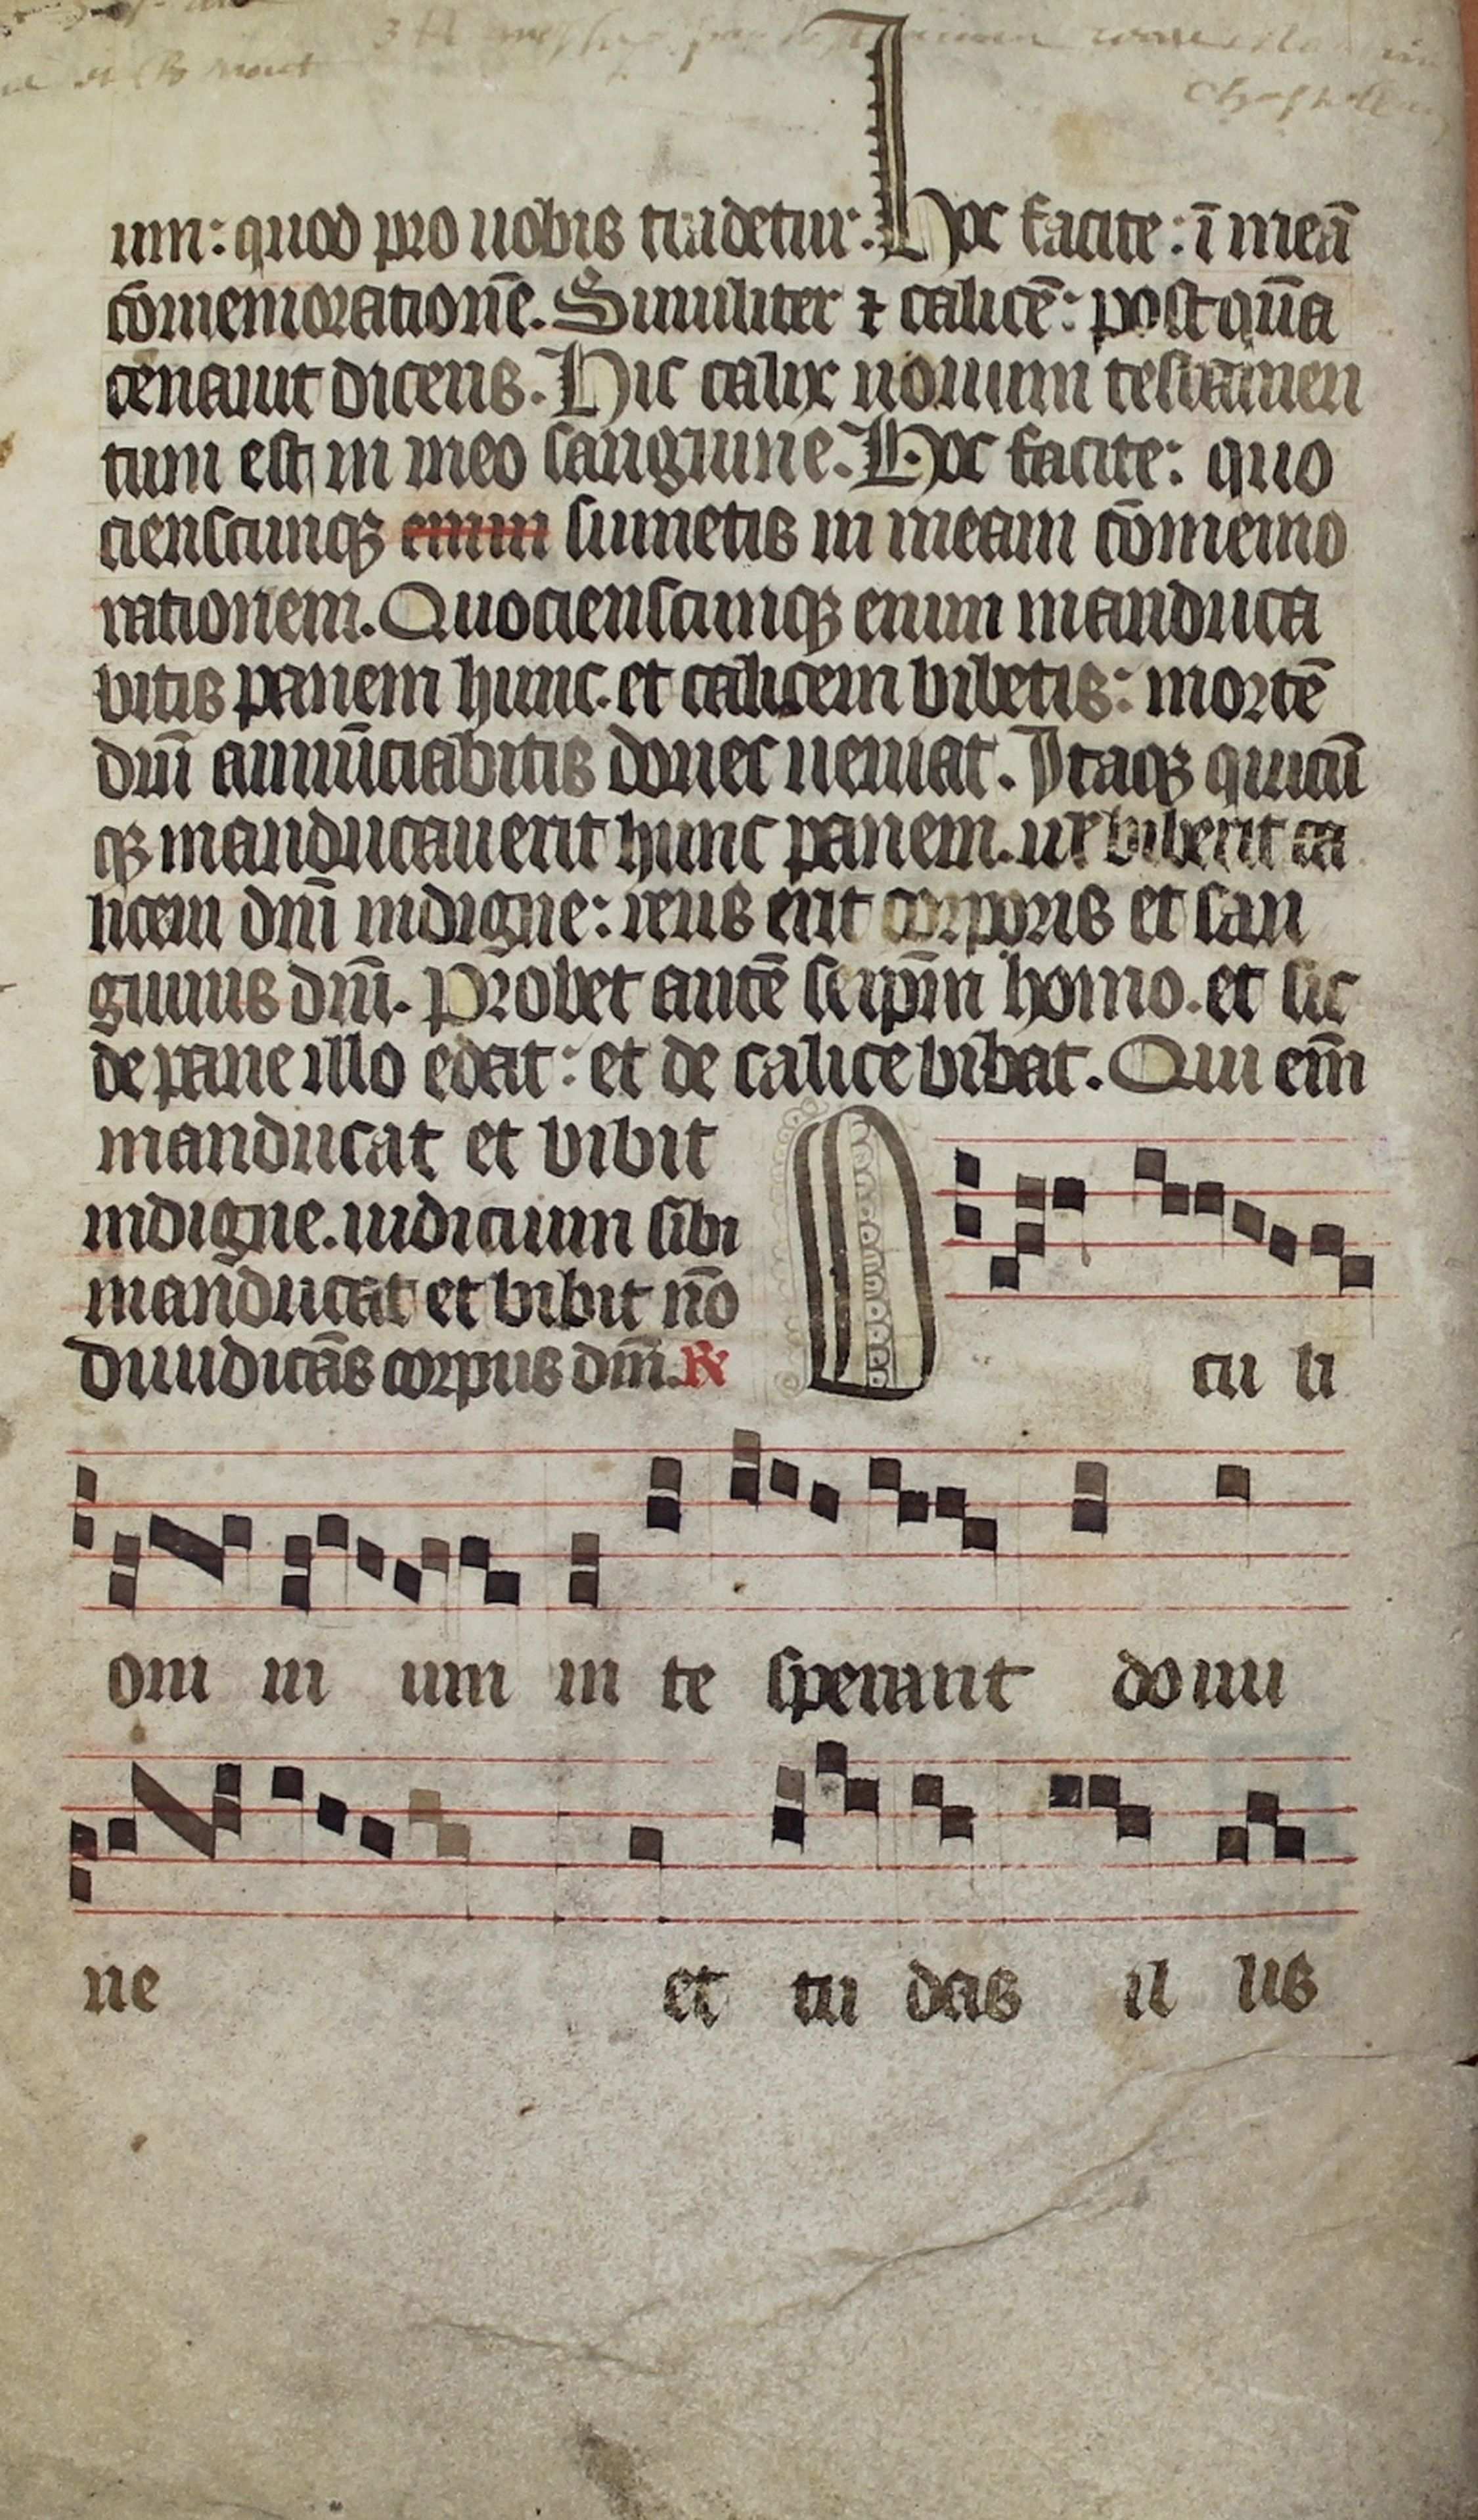 um: quod pro uobis tradetur. Hoc facite: ī meā
cōmemorationē. Similiter ⁊ calicē: postqūa
cenauit dicens. Hic calix nouum testamen
tum est in meo sanguine. Hoc facite: quo
cienscumqꝫ enim sumetis in meam cōmemo
rationem. Quocienscumqꝫ enim manduca
bitis panem hunc. et calicem bibetis: mortē
dnī annūciabitis donec ueniat. Itaqꝫ quicū
qꝫ manducauerit hunc panem. uł biberit ca
licem dnī indigne: reus erit corporis et san
guinis dnī. Probet autē seip̄m homo. et sic
de pane illo edat: et de calice bibat. Qui enī
manducat et bibit
indigne. iudicium sibi
manducat et bibit nō
diiudicās corpus dnī. ℟
O cu li
om in um in te sperant domi
ne et tu das il lis